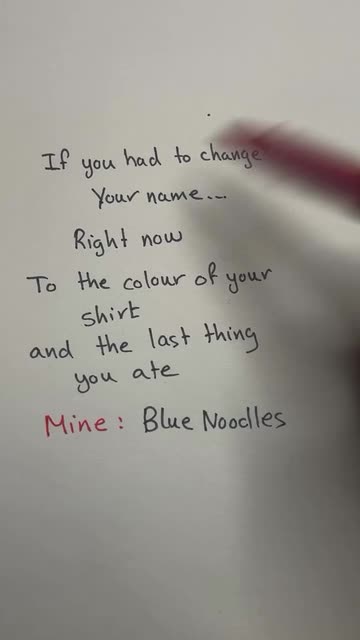 If you had to change
Your name...
Right now
To the colour of your
shirt
and the last thing
you ate
Mine: Blue Noodles